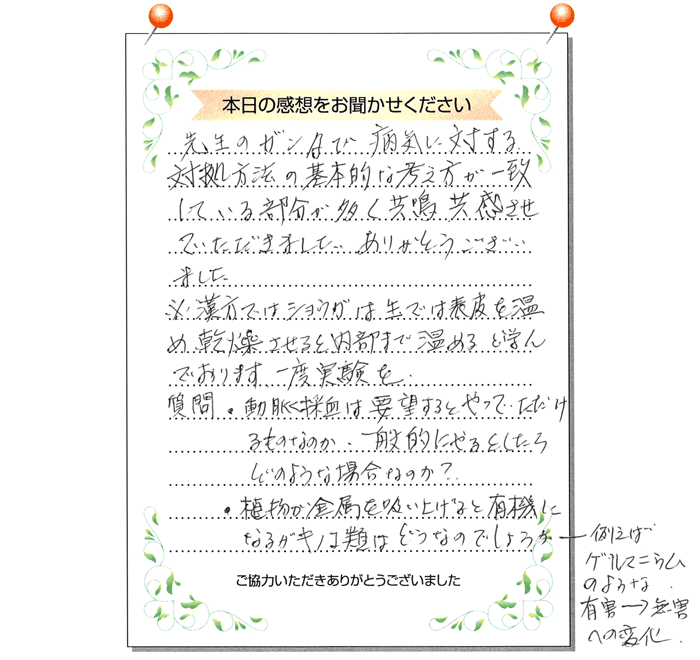 本日の感想をお聞かせください
先生のガン及び病気に対する
対処方法の基本的な考え方が一致
している部分が多く共鳴共感させ
ていただきました。ありがとうござい
ました
※漢方ではショウガは生では表皮を温
め乾燥させると内部まで温めると学ん
でおります一度実験を.
質問・動脈採血は要望するとやっていただけ
るものなのか、一般的にやるとしたら
どのような場合なのか?
・植物が金属を吸い上げると有機に
なるがキノコ類はどうなのでしょうか
例えば
ゲルマニウム
のような.
有害→無害
への変化.
ご協力いただきありがとうございました